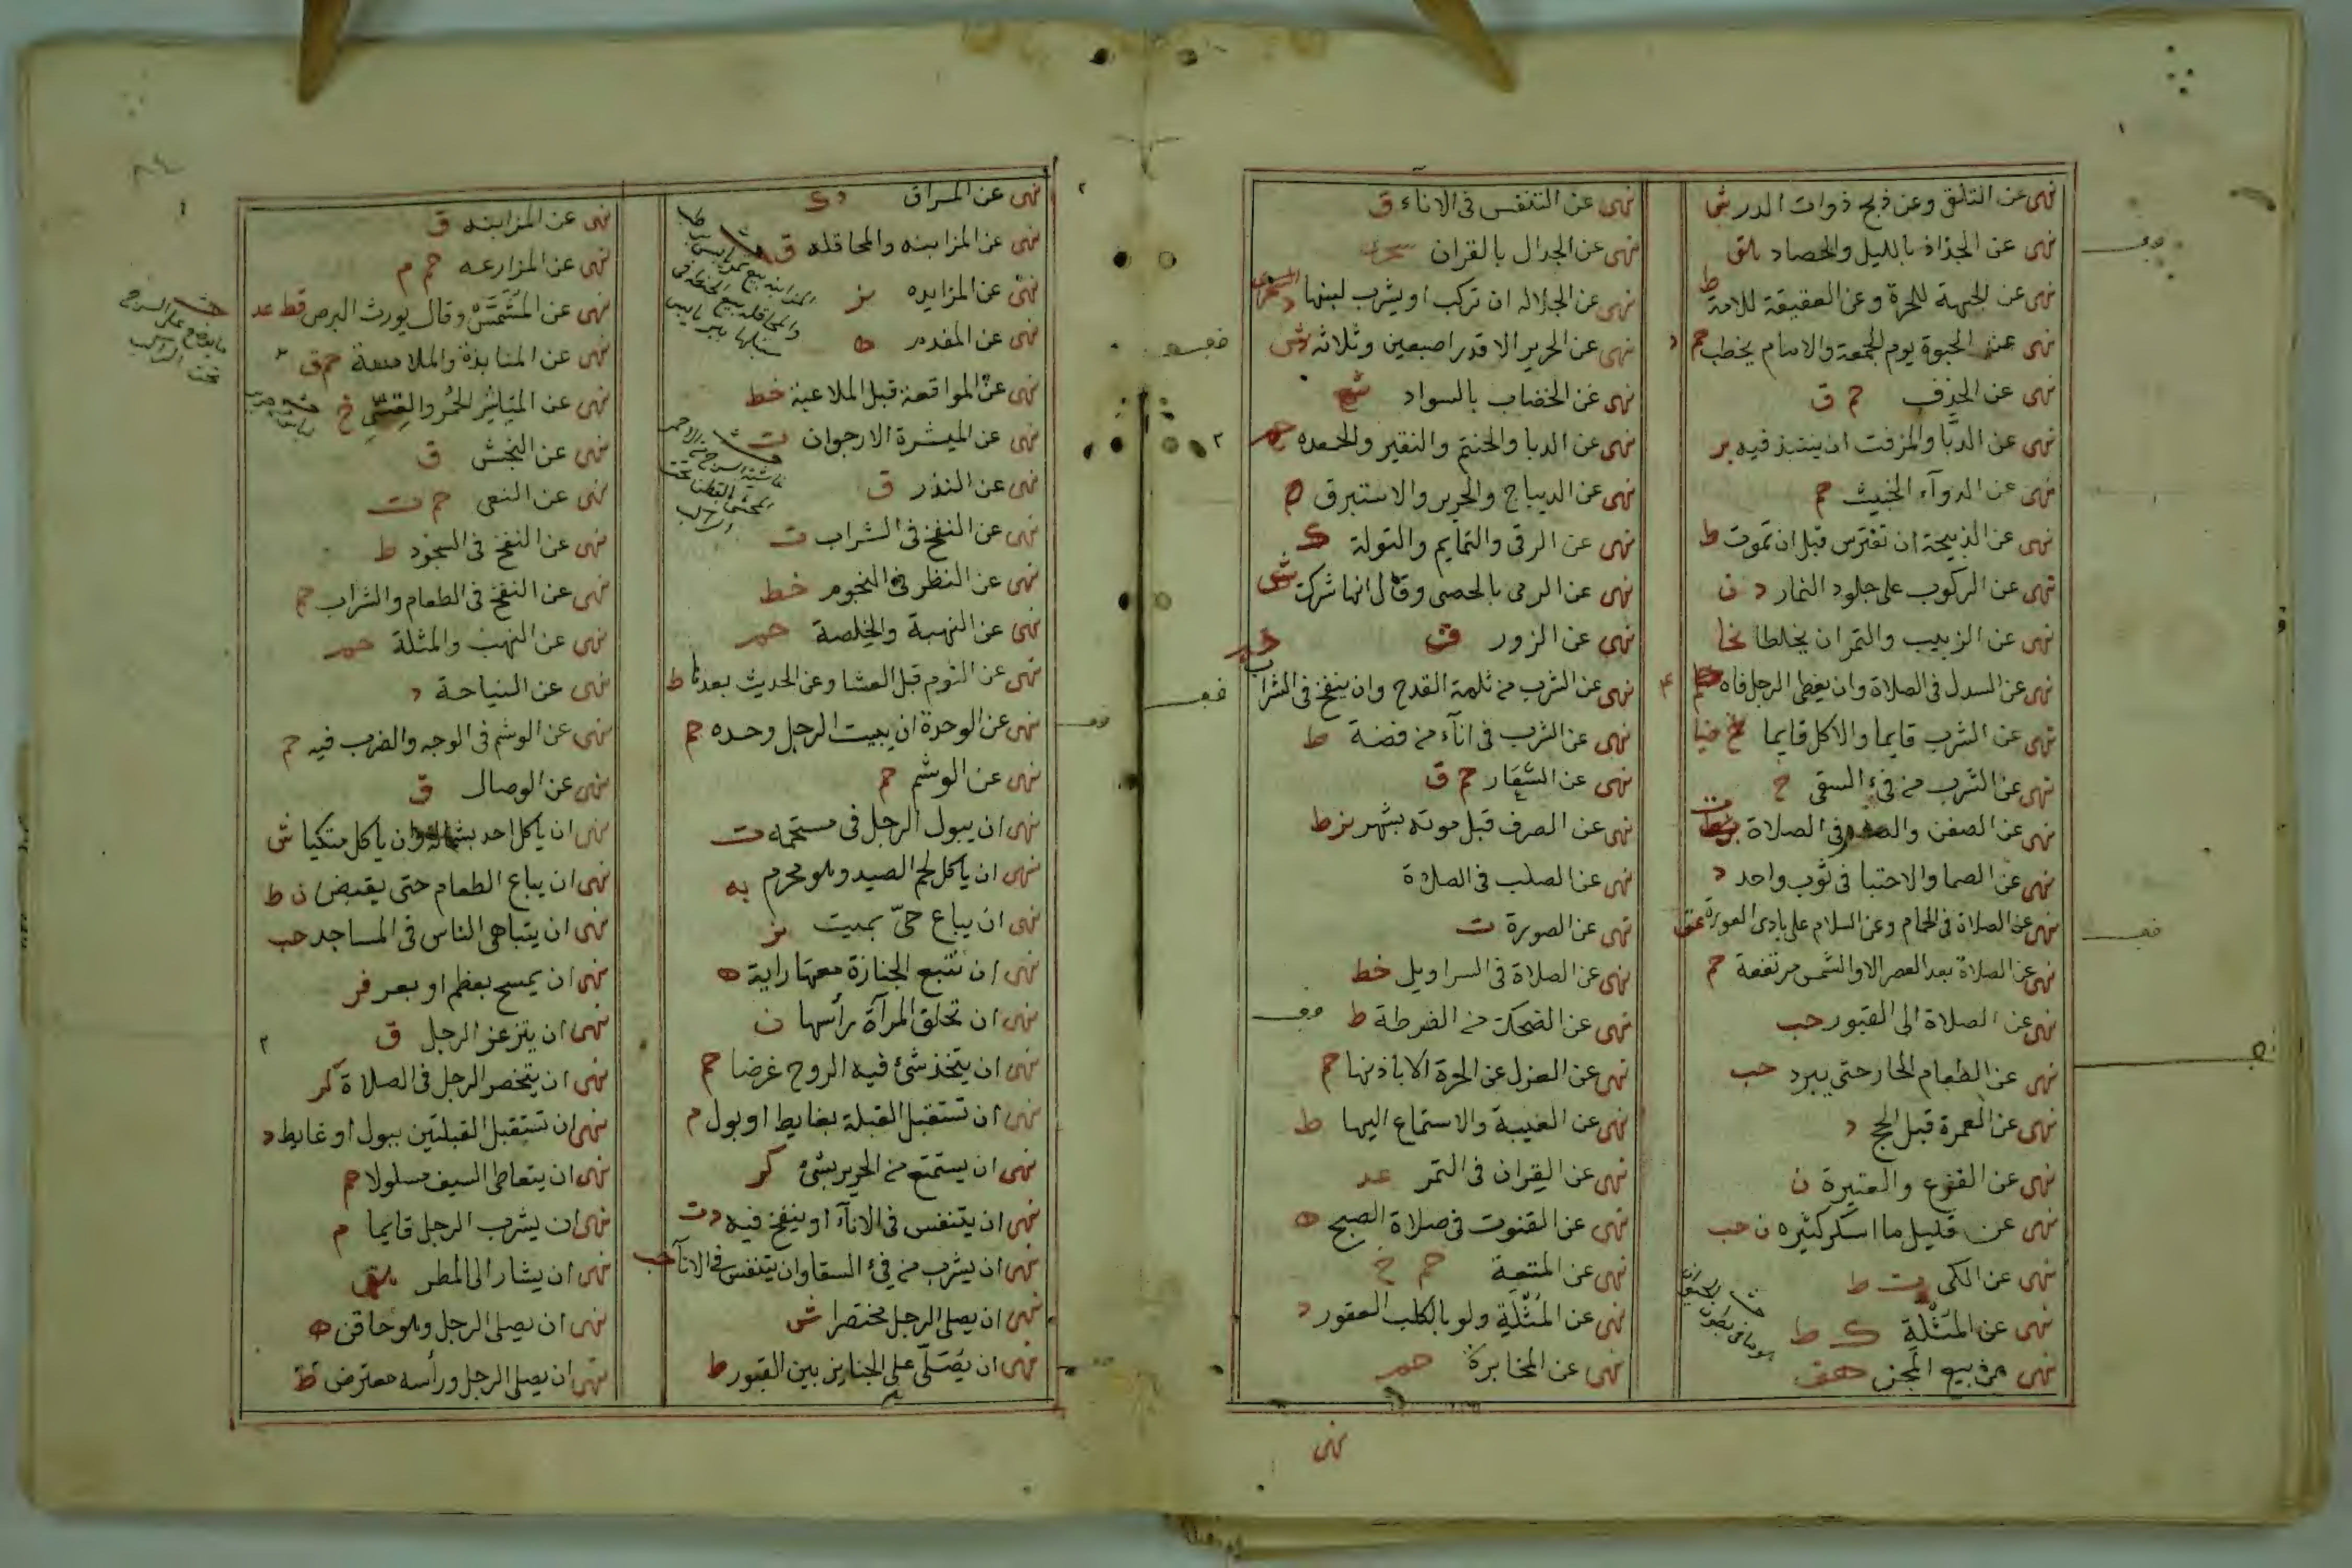 نهى عن التلقى وعن ذبح ذوات الدر ش
نهى عن الجذاذ بالليل والحصاد هق
نهى عن الجبهة للحرة وعن العقيقة للامة ط
نهى عن الحبوة يوم الجمعة والامام يخطب حم د
نهى عن الخذف حم ق
نهى عن الدبّا والمزفت ان ينتبذ فيه بر
نهى عن الدوآء الخبيث حم
نهى عن الذبيحة ان تفترس قبل ان تموت ط
نهى عن الركوب على جلود النمار د ن
نهى عن الزبيب والتمر ان يخلطا
نهى عن السدل فى الصلاة وان يغطى الرجل فاه
نهى عن الشرب قايما والاكل قايما ضيا
نهى عن الشرب من فىء السقى خ
نهى عن الصفن فى الصلاة
نهى عن الصما والاحتبا فى ثوب واحد د
نهى عن الصلاة فى الحمام وعن السلام على بادى العورة عق
نهى عن الصلاة بعد العصر الا والشمس مرتفعة حم
نهى عن الصلاة الى القبور حب
نهى عن الطعام الحار حتى يبرد حب
نهى عن العمرة قبل الحج د
نهى عن الفنوع والعتيرة ن
نهى عن قليل ما اسكر كثيره ن حب
نهى عن الكى ت ط
نهى عن المُثْلَةِ ك ط
نهى عن بيع المجن هق
نهى عن التنفس فى الاناء ق
نهى عن الجدال بالقران
نهى عن الجلالة ان تركب او يشرب لبنها د
نهى عن الحرير الا قدر اصبعين وثلاثه
نهى عن الخضاب بالسواد
نهى عن الدبا والحنتم والنقير والجعده
نهى عن الديباج والحرير والاستبرق ه
نهى عن الرقى والتمايم والتولة ك
نهى عن الرمى بالحصى وقال انها شركت
نهى عن الزور
نهى عن الشرب من ثلمة القدح وان ينفخ فى الشراب
نهى عن الشرب فى انآء من فضة ط
نهى عن الشغار حم ق
نهى عن الصرف قبل موته بشهر بز ط
نهى عن الصلب فى الصلاة
نهى عن الصورة ت
نهى عن الصلاة فى السراويل خط
نهى عن الضحك من الضرطة ط
نهى عن العزل عن الحرة الا باذنها حم
نهى عن الغيبة والاستماع اليها ط
نهى عن القِران فى التمر عد
نهى عن القنوت فى صلاة الصبح ه
نهى عن المتعة حم خ
نهى عن المُثْلَةِ ولو بالكلب العقور د
نهى عن المخابرة حم
نهى
نهى عن المراق د ك
نهى عن المزابنه والمحاقله ق
نهى عن المزايده بز
نهى عن المفدم ه
نهى عن المواقعة قبل الملاعبة خط
نهى عن الميثرة الارجوان ت
نهى عن النذر ق
نهى عن النفخ فى الشراب ت
نهى عن النظر فى النجوم خط
نهى عن النهبة والخلصة حم
نهى عن النوم قبل العشا وعن الحديث بعدها ط
نهى عن الوحدة ان يبيت الرجل وحده حم
نهى عن الوشم حم
نهى ان يبول الرجل فى مستحمه ت
نهى ان ياكل لحم الصيد وهو محرم
نهى ان يباع حىّ بميت بز
نهى ان تتبع الجنازة معها راية ه
نهى ان تحلق المرآة رأسها ن
نهى ان يتخذ شئ فيه الروح غرضا حم
نهى ان تستقبل القبلة بغايط او بول م
نهى ان يستمتع من الحرير بشئ كر
نهى ان يتنفس فى الانآء او ينفخ فيه د ت
نهى ان يشرب من فىء السقا وان يتنفس فى الانآ حب
نهى ان يصلى الرجل مختصرا ش
نهى ان يُصَلّى على الجنايز بين القبور ط
نهى عن المزابنه ق
نهى عن المزارعه حم م
نهى عن المُشَمَّسِ وقال يورث البرص قط عد
نهى عن المنابذة والملامسة حم ق
نهى عن المياثر الحُمر والقسّىِ خ
نهى عن النجش ق
نهى عن النعى حم ت
نهى عن النفخ فى السجود ط
نهى عن النفخ فى الطعام والشراب حم
نهى عن النهب والمثلة حم
نهى عن النياحة د
نهى عن الوشم فى الوجه والضرب فيه حم
نهى عن الوصال ق
نهى ان ياكل احد بشماله وان ياكل متكيا ش
نهى ان يباع الطعام حتى يقبض ن ط
نهى ان يتباهى الناس فى المساجد حب
نهى ان يمسح بعظم او بعر
نهى ان يتزعفر الرجل ق
نهى ان يتخصر الرجل فى الصلاة كر
نهى ان تستقبل القبلتين ببول او غايط د
نهى ان يتعاطى السيف مسلولا حم
نهى ان يشرب الرجل قايما م
نهى ان يشار الى المطر هق
نهى ان يصلى الرجل وهو حاقن ه
نهى ان يصلى الرجل ورأسه معترض ط